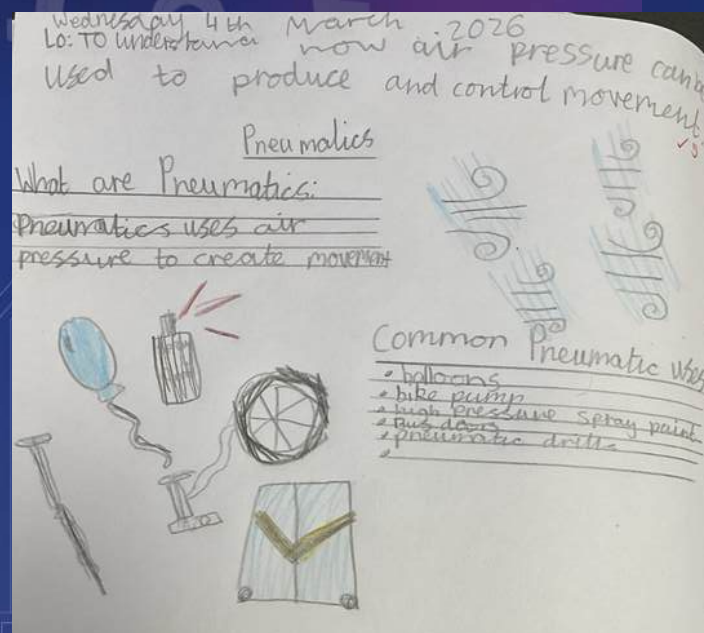 Wednesday 4th March 2026
LO: TO understand how air pressure can be
used to produce and control movement
Pneumatics
What are Pneumatics:
Pneumatics uses air
pressure to create movement
Common Pneumatic uses
• balloons
• bike pump
• high pressure spray paint
• Bus doors
• pneumatic drills
•